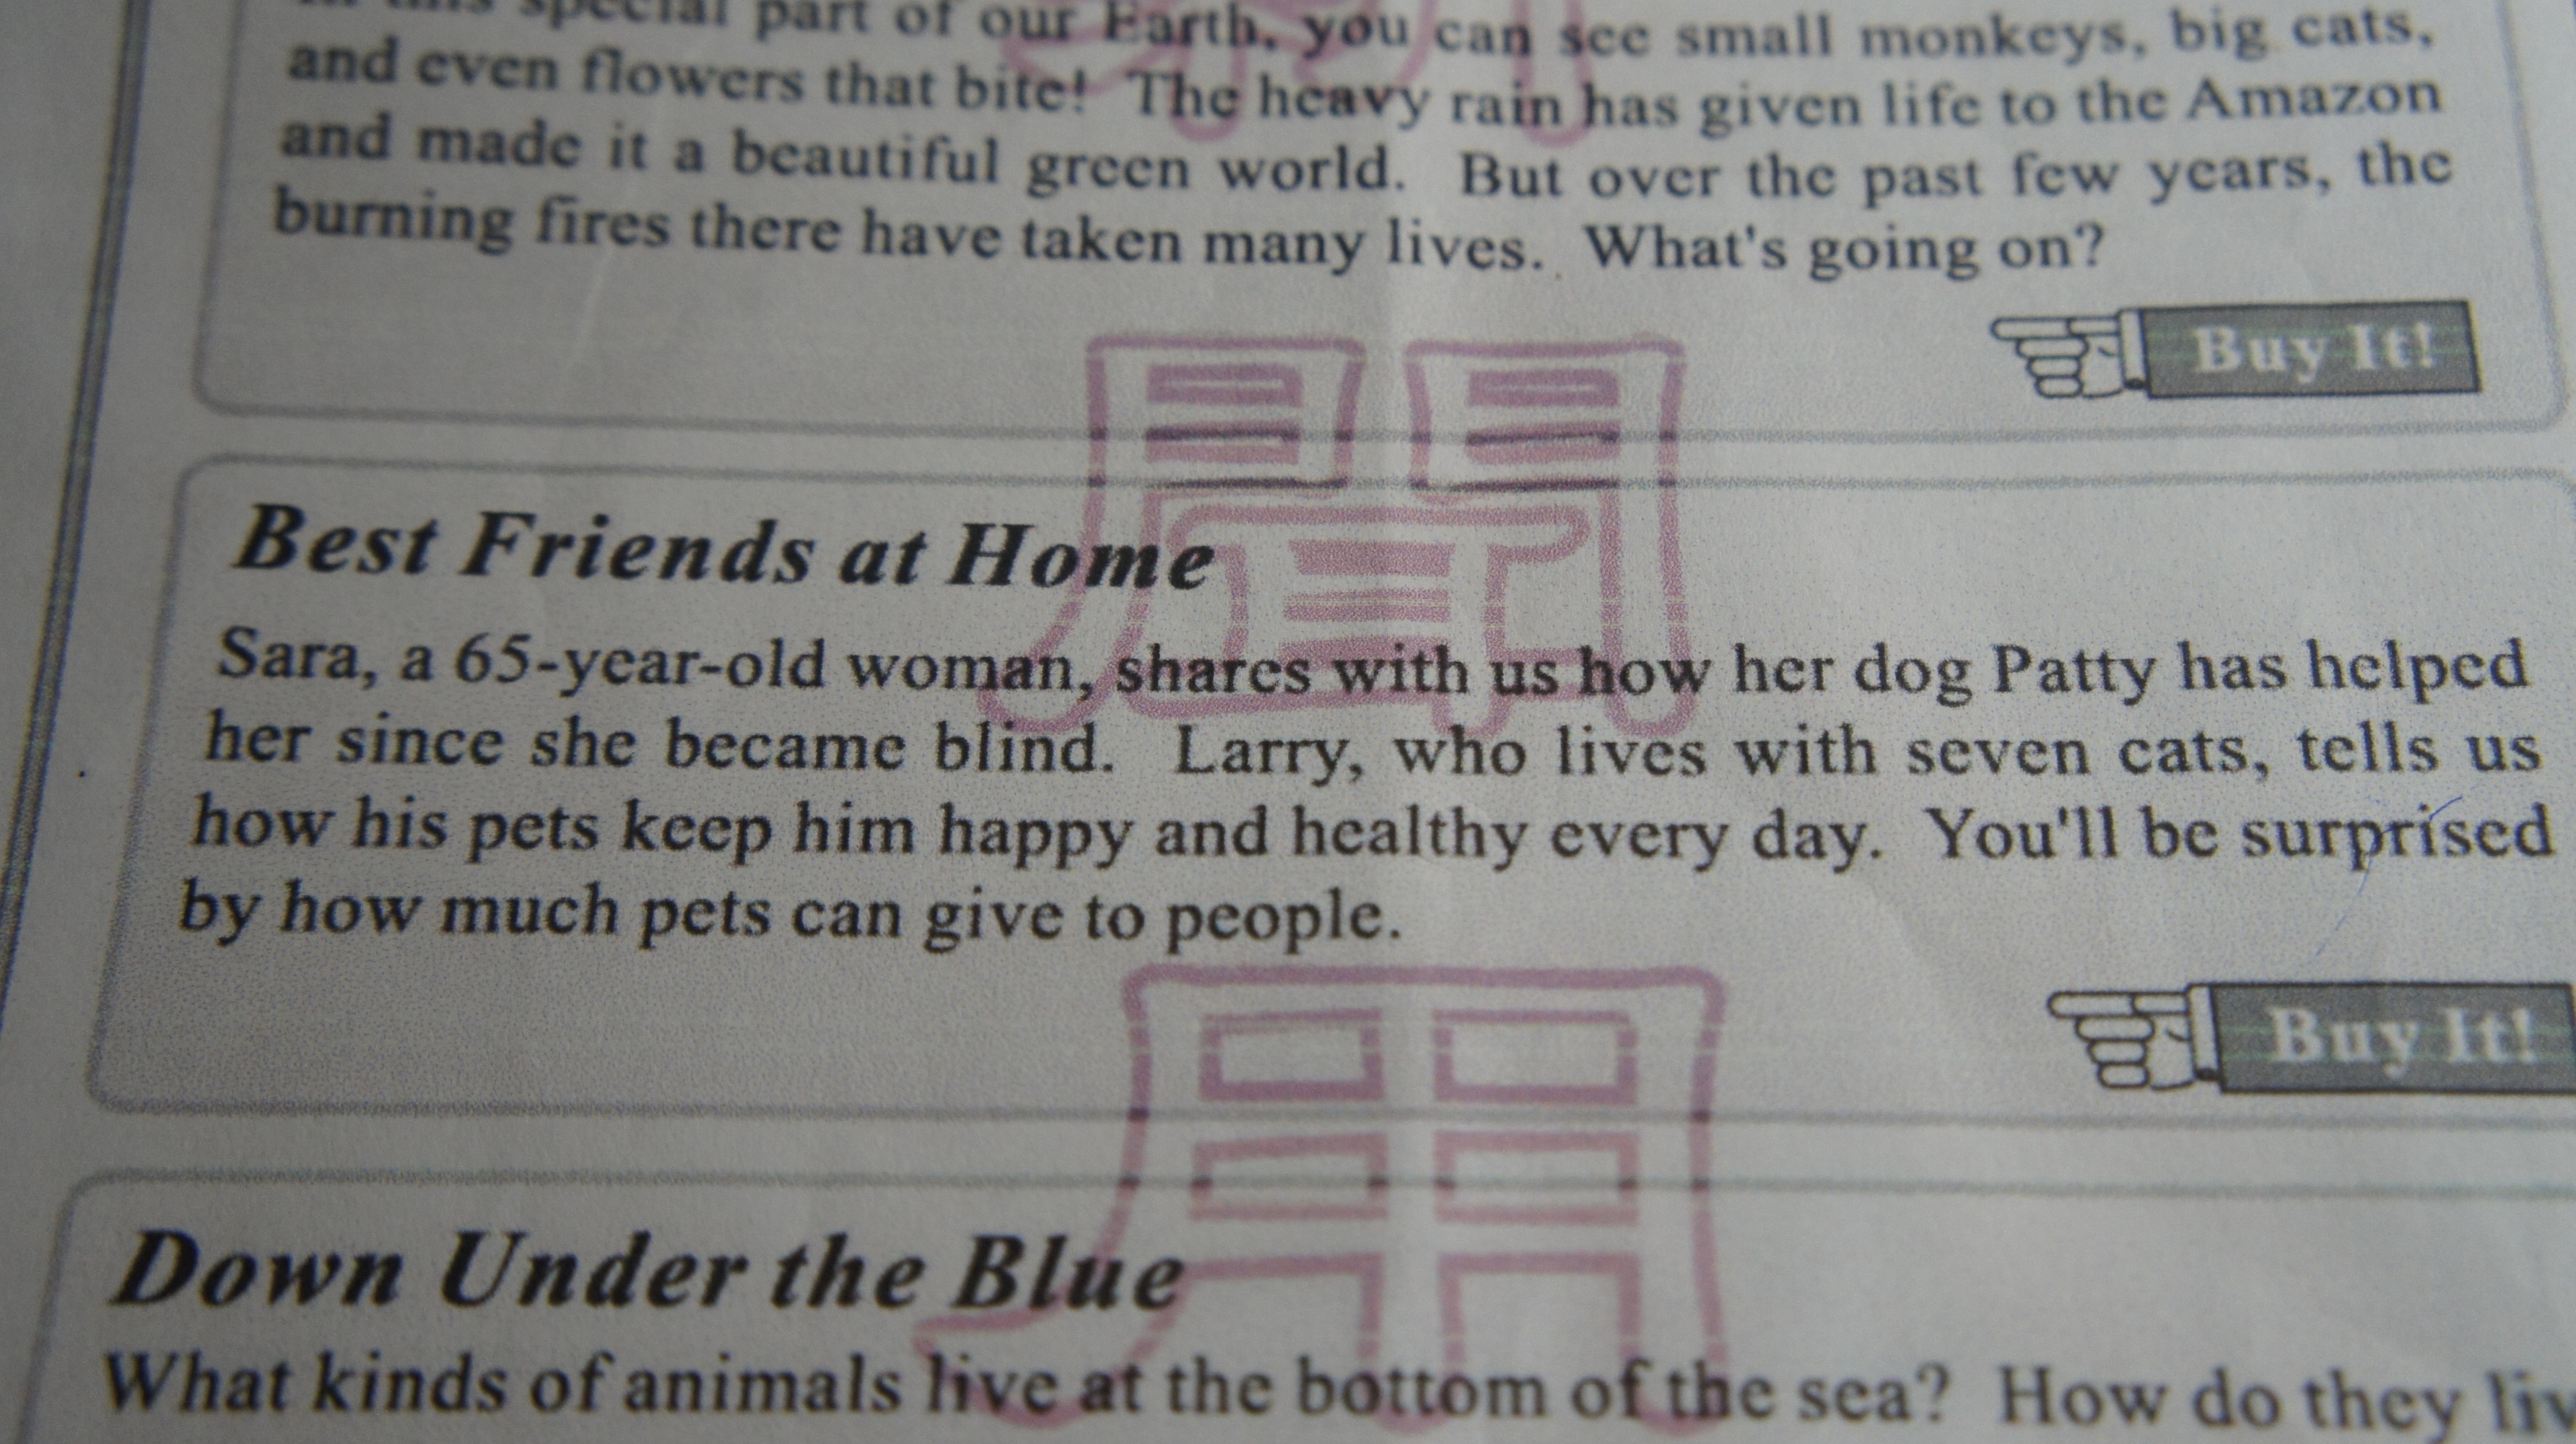 In this special part of our Earth, you can see small monkeys, big cats,
and even flowers that bite! The heavy rain has given life to the Amazon
and made it a beautiful green world. But over the past few years, the
burning fires there have taken many lives. What's going on?
Buy It!
聞
Best Friends at Home
Sara, a 65-year-old woman, shares with us how her dog Patty has helped
her since she became blind. Larry, who lives with seven cats, tells us
how his pets keep him happy and healthy every day. You'll be surprised
by how much pets can give to people.
Buy It!
用
Down Under the Blue
What kinds of animals live at the bottom of the sea? How do they liv